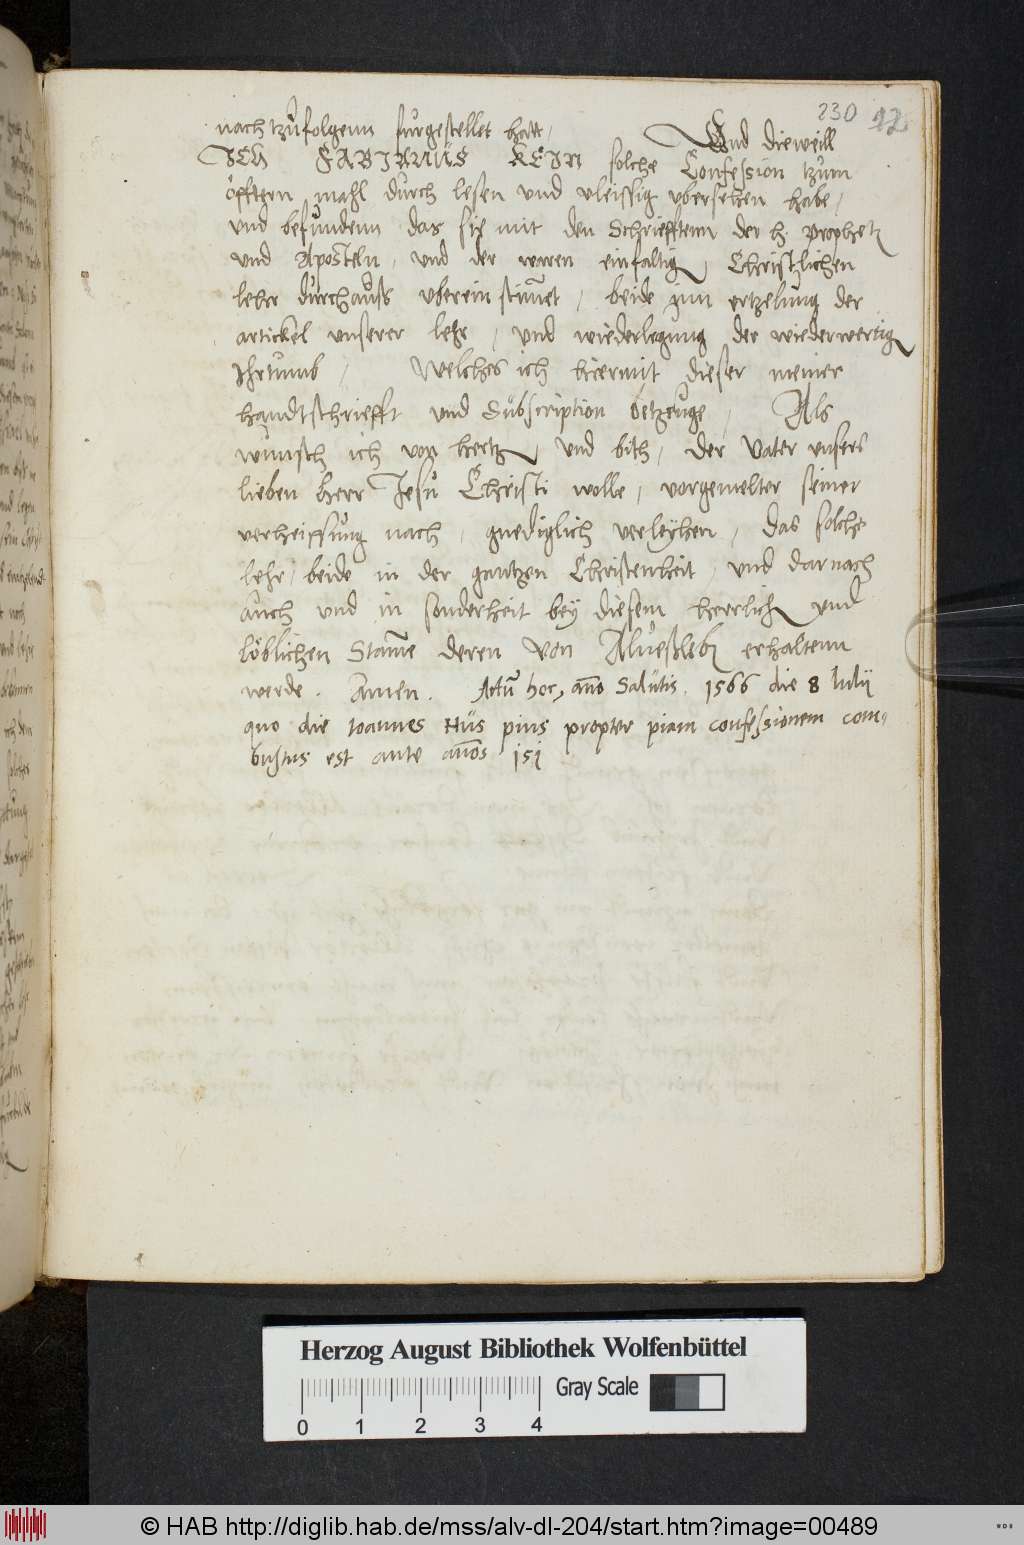 230 12
nach tzu folgenn furgestellet hatt, Und dieweill
ICH FABIANUS KEIN solche Confession tzum
öfftern mahl durch lesen und vleissig ubersehen habe,
und befundenn das sie mit den Schriefftenn der h. Prophet
und Aposteln, und der waren einfaltig Christlichen
lehr durchauss uberein stimet, beide inn ertzelung der
artickel unserer lehr, und wiederlegung der wiederwertig
Ihrtumb, Welches ich hiermit dieser meiner
handtschriefft und Subscription betzeuge, Als
wunsch ich von hertz, und bith, Der Vater unsers
lieben herr Jesu Christi wolle, vorgemelter seiner
verheissung nach, gnediglich verleyhen, das solche
lehr, beide in der gantzen Christenheit, und darnach
auch und in sonderheit bey diesem herrlich und
löblichen Stame deren von Alvessleb erhaltenn
werde. Amen. Actu hoc, ano Salutis. 1566 die 8 Iulij
quo die Ioannes Hus pius propter piam confessionem com-
bustus est ante anos 151
Herzog August Bibliothek Wolfenbüttel
0 1 2 3 4 Gray Scale
© HAB http://diglib.hab.de/mss/alv-dl-204/start.htm?image=00489